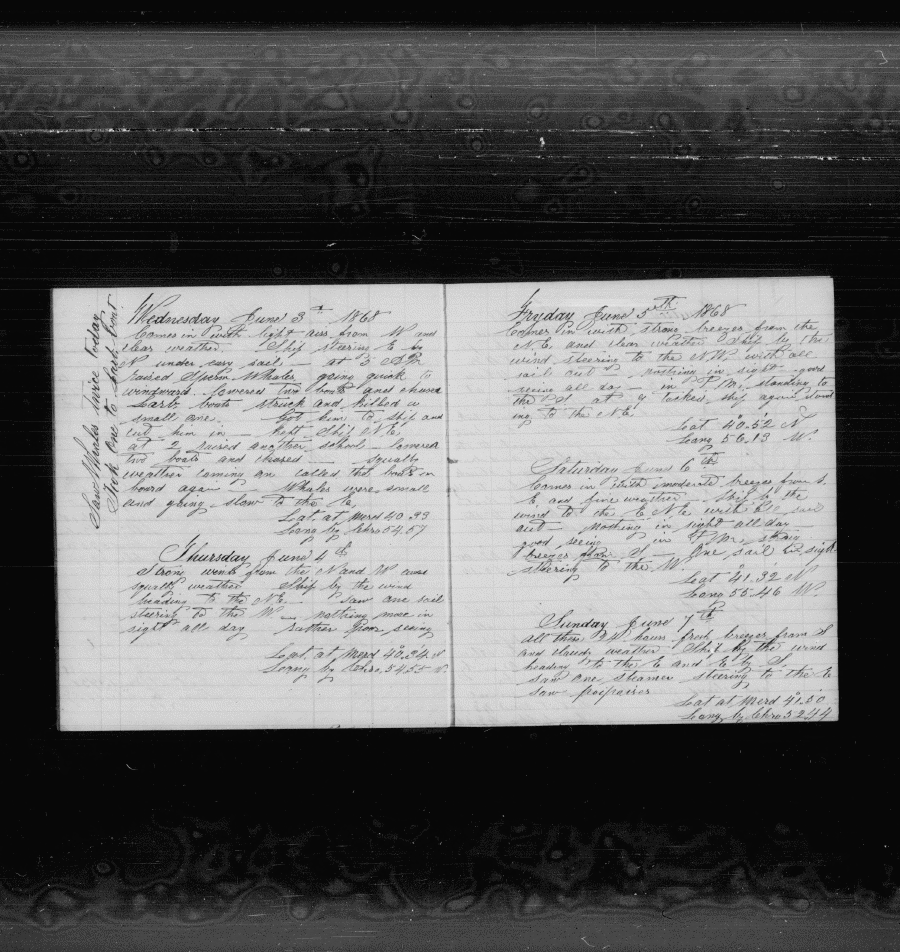 Saw Whales twice today
Struck one to Larb. boat
Wednesday June 3rd 1868
Comes in with light airs from W and
clear weather. Ship steering E by
N under easy sail — at 3
raised Sperm Whales going quick to
windward lowered two boats and chased
Larb. boats struck and killed a
small one. Got him to ship and
cut him in — kept ship N.E.
at 2 raised another school — lowered
two boats and chased — squally
weather coming on called the boats on
board again Whales were small
and going slow to the E.
Lat. at Merd 40.33
Long by Chro 54.57
Thursday June 4th
Strong winds from the N and W and
squally weather Ship by the wind
heading to the NE — saw one sail
steering to the W. — nothing more in
sight all day rather poor seeing
Lat. at Merd 40.34 N
Long by Chro. 54.55
Fryday June 5th 1868
Comes in with strong breezes from the
N.E. and clear weather Ship by the
wind steering to the N.W. with all
sail out nothing in sight good
seeing all day — in P.M. standing to
the at 4 tacked ship again stand
ing to the N.E.
Lat 40.52 N
Long 56.13 W.
Saturday June 6th
Comes in with moderate breezes from S.
E and fine weather Ship by the
wind to the E N.E. with all sail
out — Nothing in sight all day
good seeing in P.M. strong
breezes from S — One sail in sight
steering to the W.
Lat 41.32 N
Long 55.46 W.
Sunday June 7th
All these 24 hours fresh breezes from S
and cloudy weather Ship by the wind
heading to the E and E by S.
saw one steamer steering to the E
saw poipoises
Lat at Merd 41.50
Long by Chro 52.44